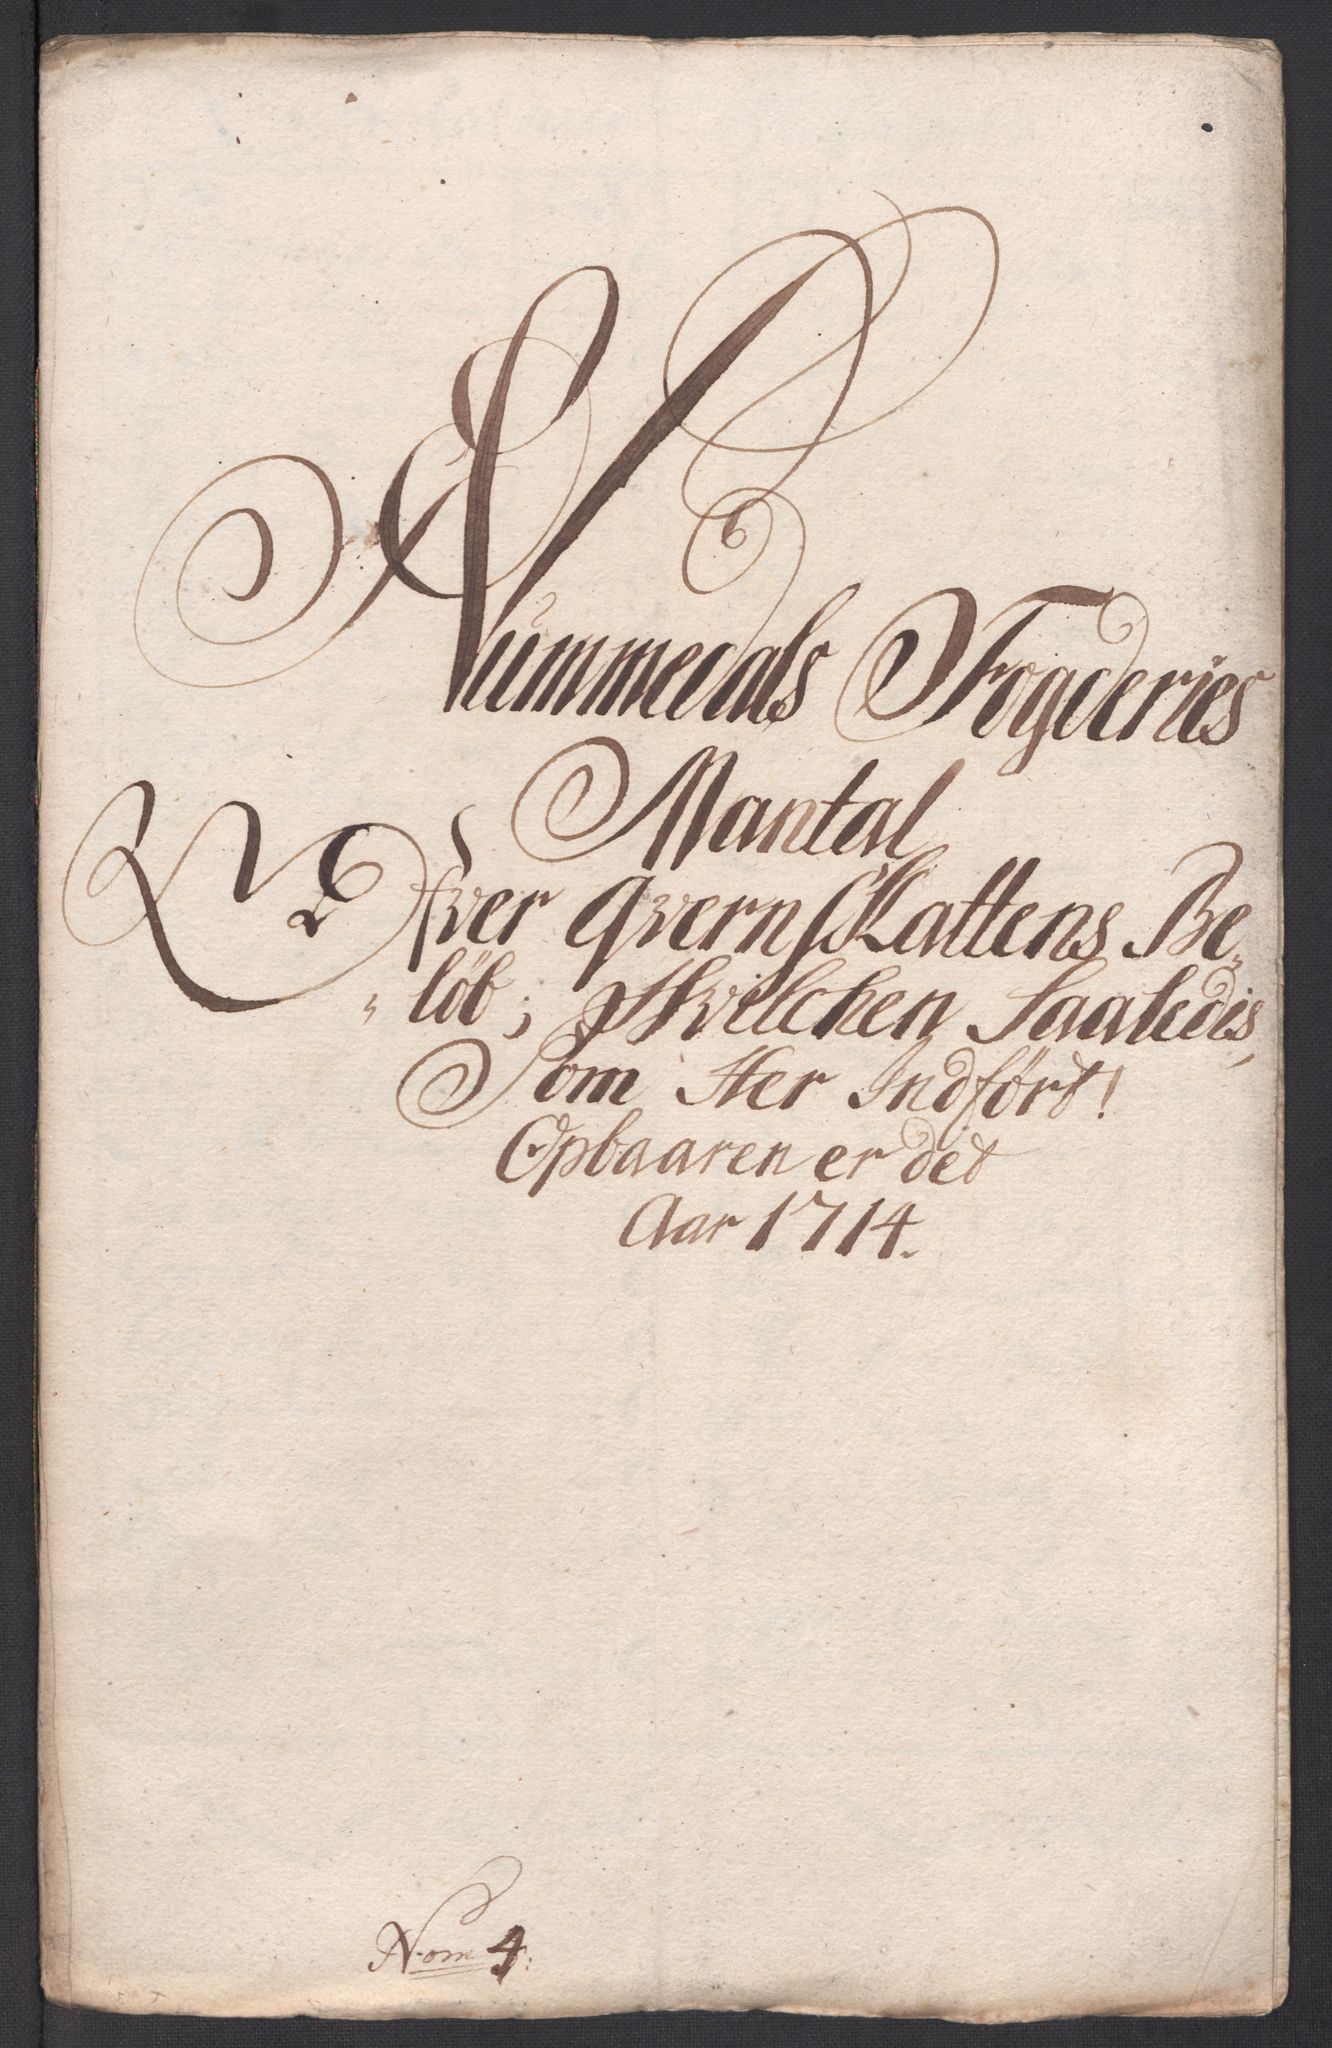 Nummedals Fogderies
Mantal
Ofver qvernskattens Be„
„löb; Hvilchen Saaledis,
Som Her Indfört!
Opbaaren er det
Aar 1714.
Nom 4: